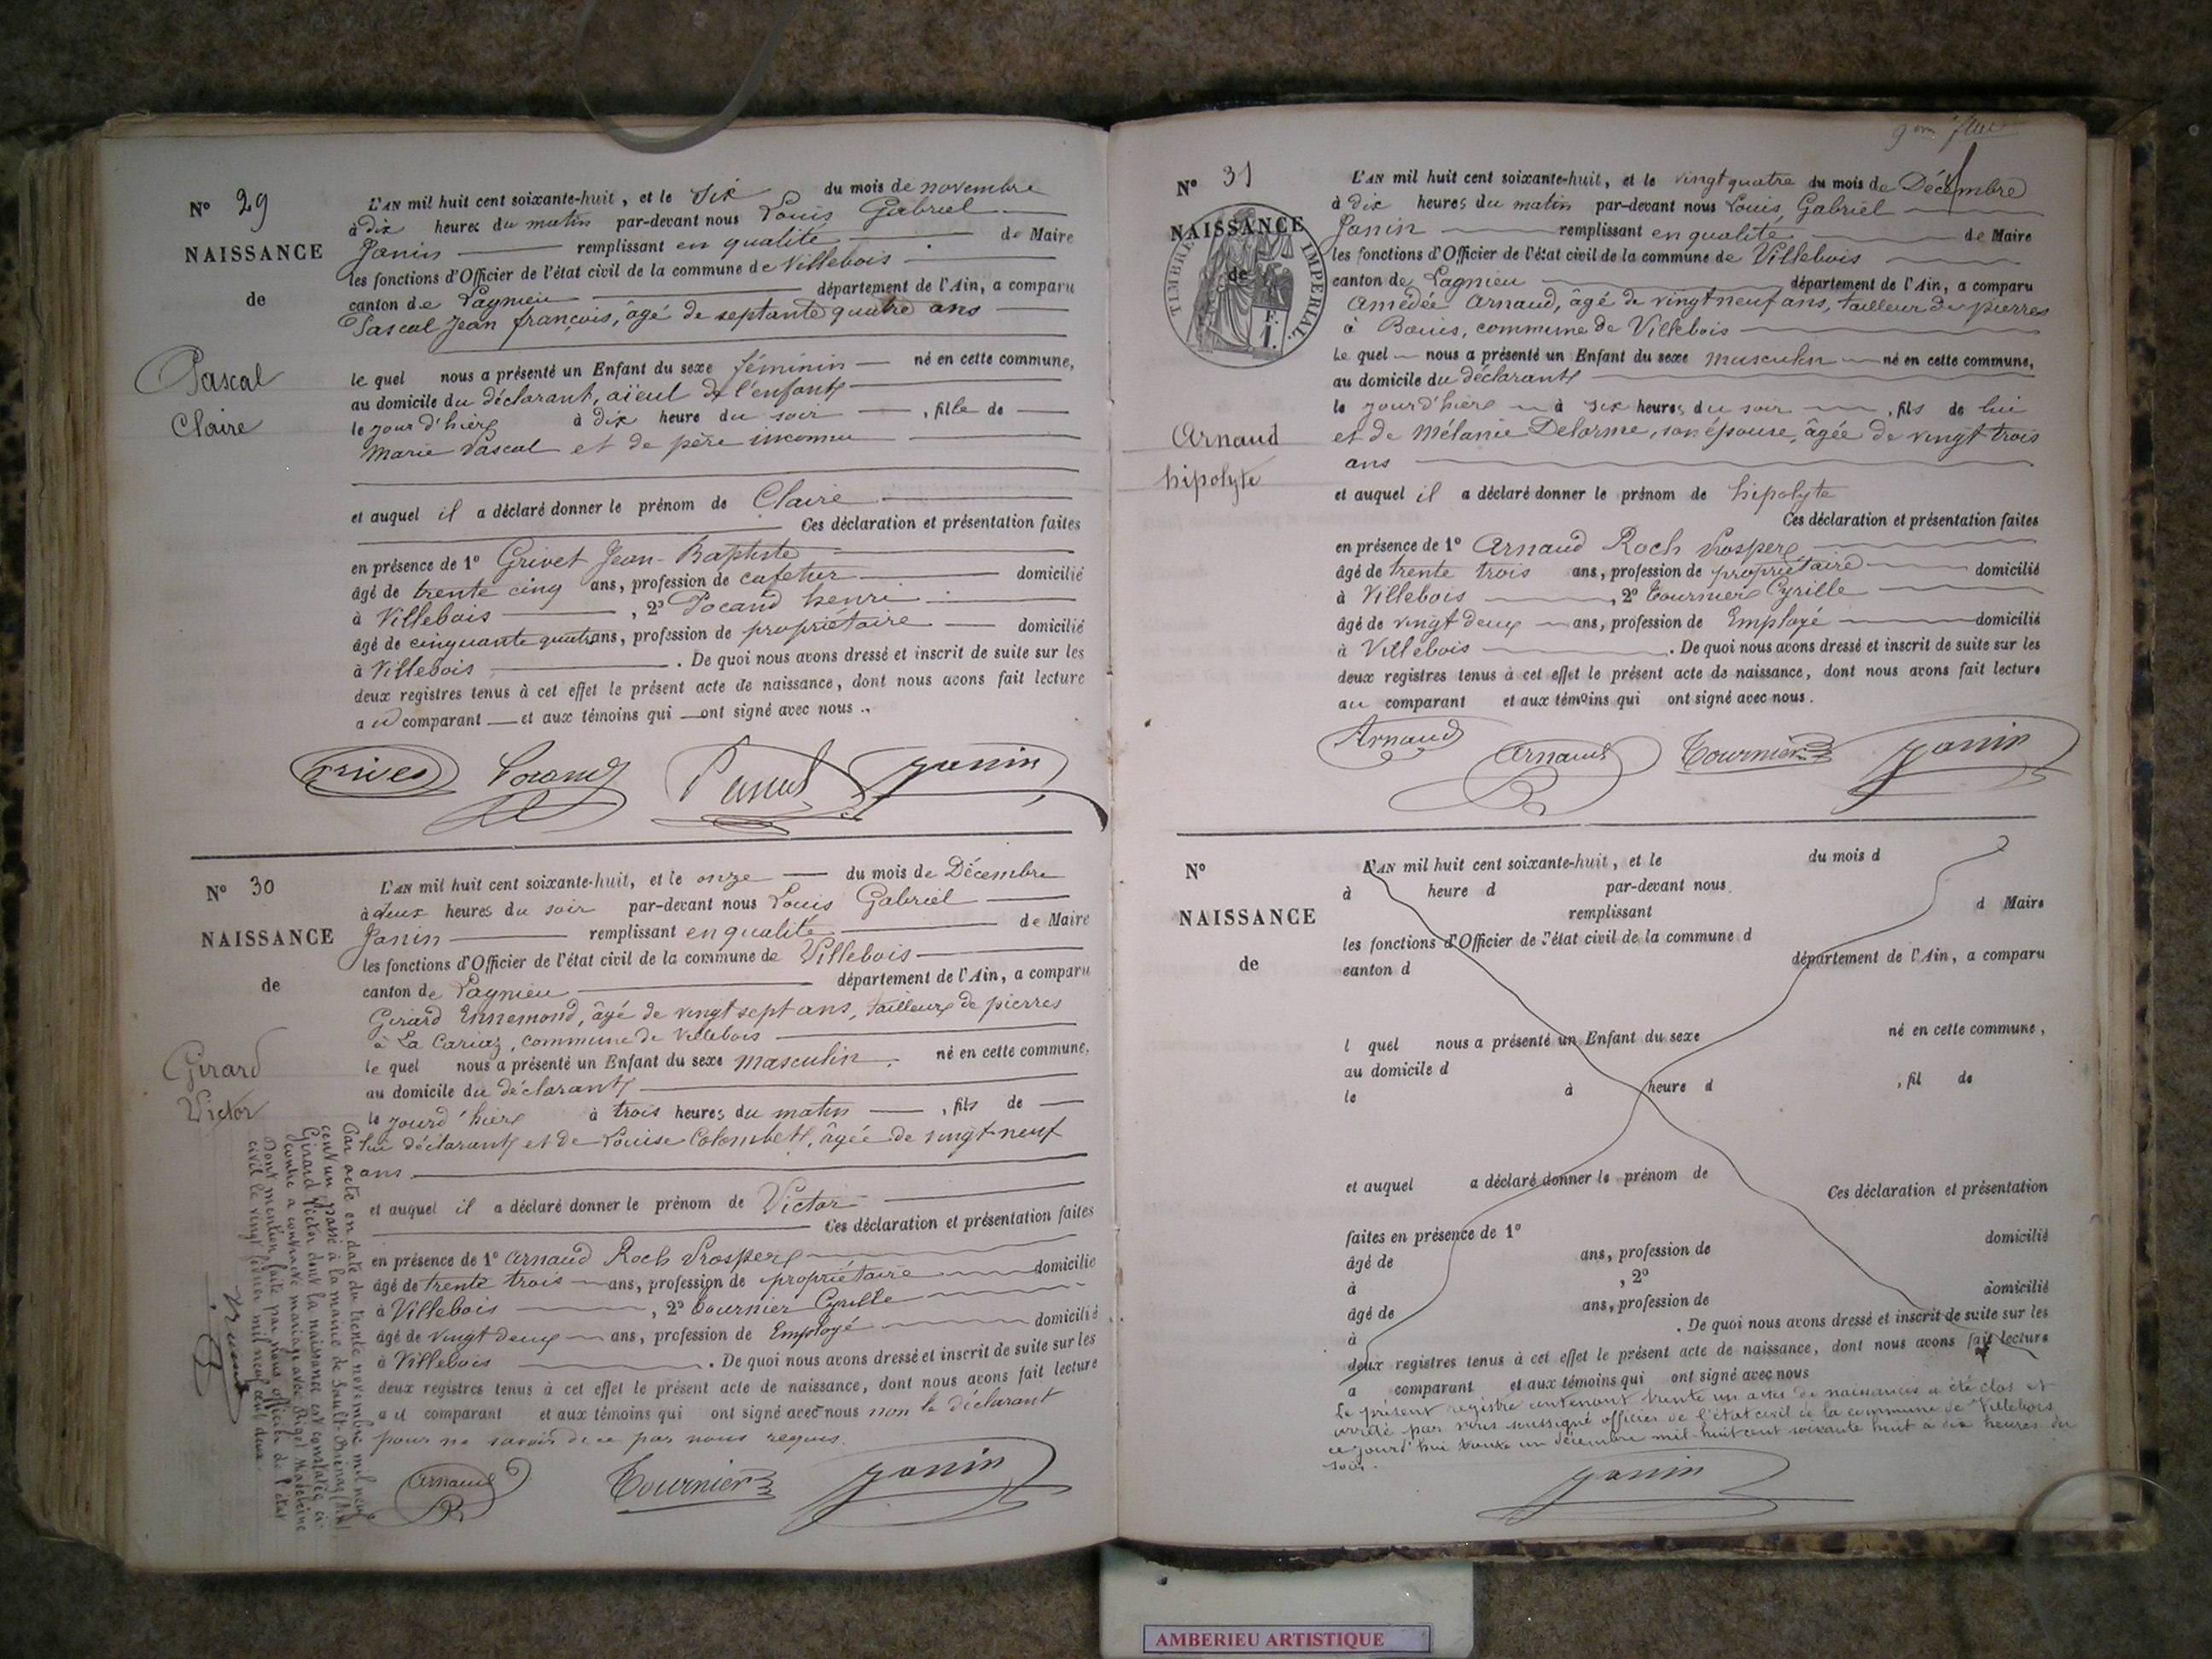 N° 29
NAISSANCE
de
Pascal
Claire
L'AN mil huit cent soixante-huit, et le Six du mois de novembre
à dix heures du matin par-devant nous Louis Gabriel
Janin remplissant en qualité de Maire
les fonctions d'Officier de l'état civil de la commune de Villebois
canton de Lagnieu département de l'Ain, a comparu
Pascal Jean françois, âgé de septante quatre ans
le quel nous a présenté un Enfant du sexe féminin né en cette commune,
au domicile du déclarant, aïeul de l'enfant
le jour d'hier à dix heure du soir, fille de
Marie Pascal et de père inconnu
et auquel il a déclaré donner le prénom de Claire
Ces déclaration et présentation faites
en présence de 1° Grivet Jean-Baptiste
âgé de trente cinq ans, profession de cafetier domicilié
à Villebois, 2° Pocand henri
âgé de cinquante quatre ans, profession de propriétaire domicilié
à Villebois. De quoi nous avons dressé et inscrit de suite sur les
deux registres tenus à cet effet le présent acte de naissance, dont nous avons fait lecture
au comparant et aux témoins qui ont signé avec nous.
Janin
N° 30
NAISSANCE
de
Girard
Victor
L'AN mil huit cent soixante-huit, et le onze du mois de Décembre
à deux heures du soir par-devant nous Louis Gabriel
Janin remplissant en qualité de Maire
les fonctions d'Officier de l'état civil de la commune de Villebois
canton de Lagnieu département de l'Ain, a comparu
Girard Ennemond, âgé de vingt sept ans, tailleur de pierres
à La Cariaz, commune de Villebois
le quel nous a présenté un Enfant du sexe masculin. né en cette commune,
au domicile du déclarant
le jourd'hier à trois heures du matin, fils de
lui déclarant et de Louise Colombet, âgée de vingt-neuf
ans
et auquel il a déclaré donner le prénom de Victor
Ces déclaration et présentation faites
en présence de 1° Arnaud Roch Prosper
âgé de trente trois ans, profession de propriétaire domicilié
à Villebois, 2° Tournier Cyrille
âgé de vingt deux ans, profession de Employé domicilié
à Villebois. De quoi nous avons dressé et inscrit de suite sur les
deux registres tenus à cet effet le présent acte de naissance, dont nous avons fait lecture
au comparant et aux témoins qui ont signé avec nous non le déclarant
pour ne savoir de ce par nous requis.
Arnaud Tournier Janin
Par acte en date du trente novembre mil neuf
cent un passé à la mairie de Sault-Brénaz (Ain)
Girard Victor dont la naissance est constatée ci
contre a contracté mariage avec Madeleine
Dont mention faite par nous officier de l'état
civil le vingt février mil neuf cent deux.
N° 31
NAISSANCE
de
TIMBRE IMPERIAL
Arnaud
hipolyte
L'AN mil huit cent soixante-huit, et le vingt quatre du mois de Décembre
à dix heures du matin par-devant nous Louis, Gabriel
Janin remplissant en qualité de Maire
les fonctions d'Officier de l'état civil de la commune de Villebois
canton de Lagnieu département de l'Ain, a comparu
Amédée Arnaud, âgé de vingt neuf ans, tailleur de pierres
à Bouis, commune de Villebois
Le quel nous a présenté un Enfant du sexe masculin né en cette commune,
au domicile du déclarant
le jourd'hier à six heures du soir, fils de lui
et de Mélanie Delorme, son épouse, âgée de vingt trois
ans
et auquel il a déclaré donner le prénom de hipolyte
Ces déclaration et présentation faites
en présence de 1° Arnaud Roch Prosper
âgé de trente trois ans, profession de propriétaire domicilié
à Villebois, 2° Tournier Cyrille
âgé de vingt deux ans, profession de Employé domicilié
à Villebois. De quoi nous avons dressé et inscrit de suite sur les
deux registres tenus à cet effet le présent acte de naissance, dont nous avons fait lecture
au comparant et aux témoins qui ont signé avec nous.
Arnaud Arnaud Tournier Janin
N°
NAISSANCE
de
L'AN mil huit cent soixante-huit, et le du mois d
à heure d par-devant nous
remplissant d Maire
les fonctions d'Officier de l'état civil de la commune d
canton d département de l'Ain, a comparu
l quel nous a présenté un Enfant du sexe né en cette commune,
au domicile d
le à heure d, fil de
et auquel a déclaré donner le prénom de
Ces déclaration et présentation
faites en présence de 1°
âgé de ans, profession de domicilié
à, 2°
âgé de ans, profession de domicilié
à. De quoi nous avons dressé et inscrit de suite sur les
deux registres tenus à cet effet le présent acte de naissance, dont nous avons fait lecture
a comparant et aux témoins qui ont signé avec nous
Le présent registre contenant trente un actes de naissances a été clos et
arrêté par nous soussigné officier de l'état civil de la commune de Villebois
ce jourd'hui trente un décembre mil-huit cent soixante huit à dix heures du
soir.
Janin
AMBERIEU ARTISTIQUE